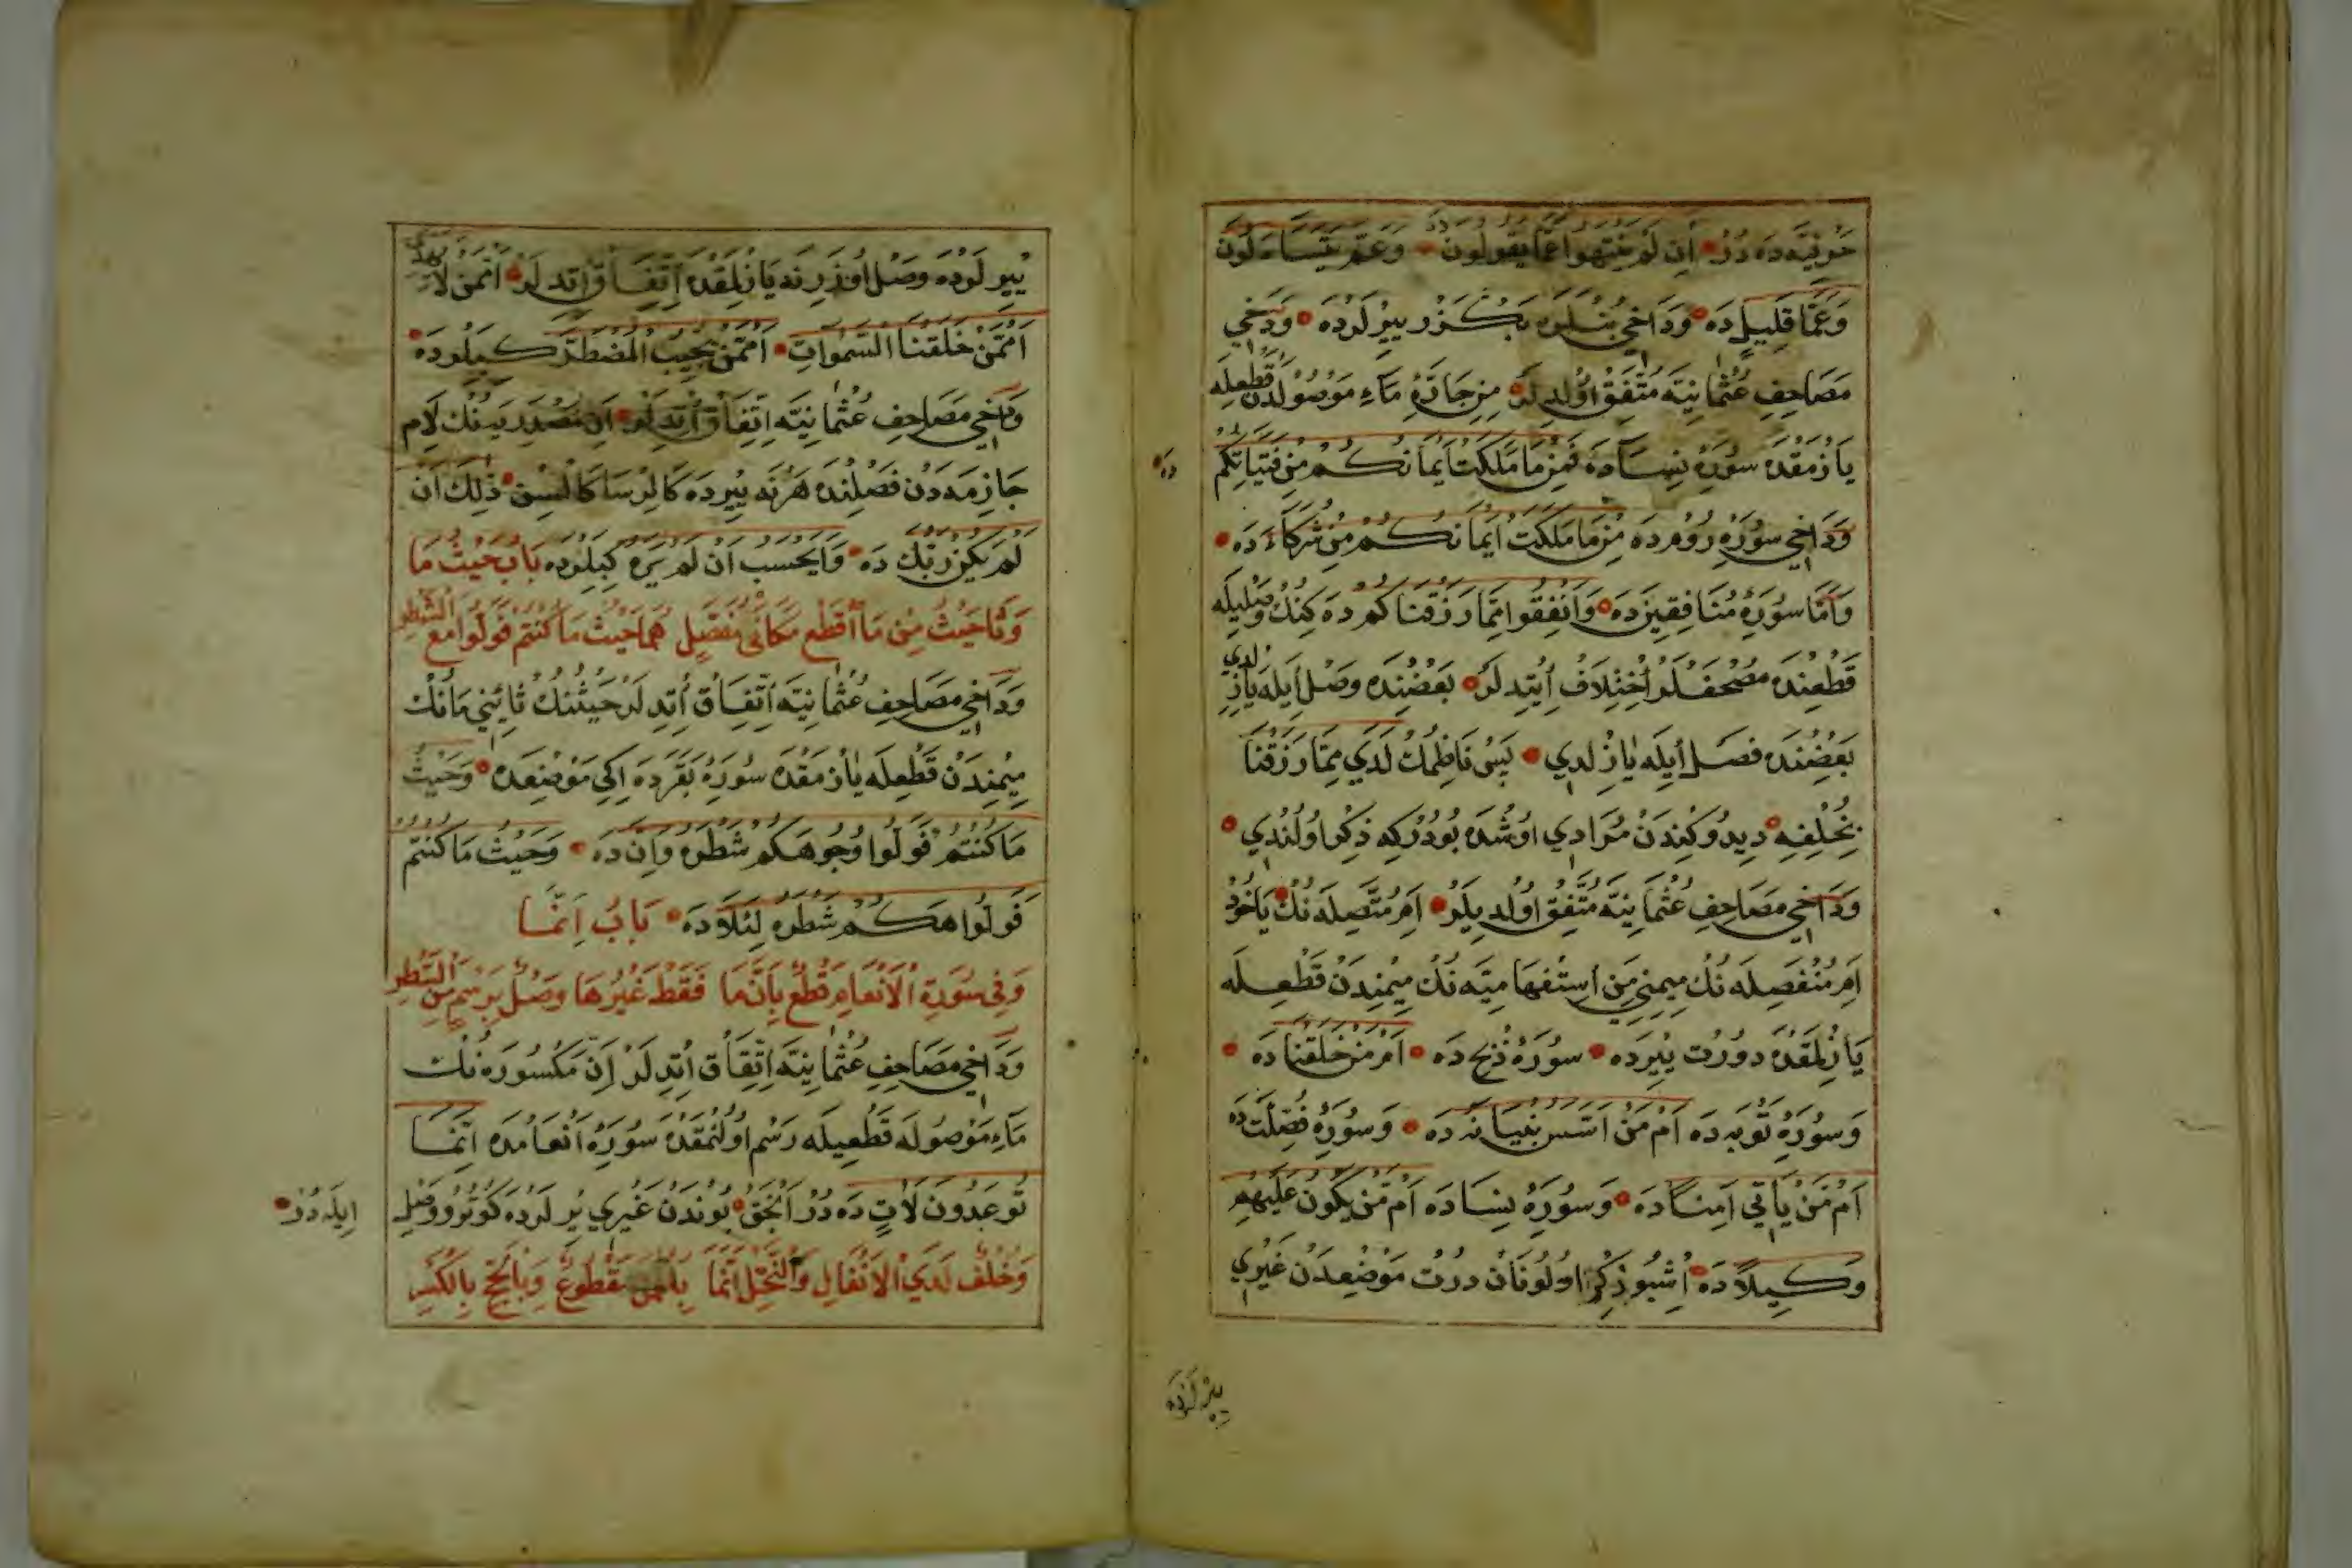 حَوْنِيَّه دَه دُرْ اَنِ لَمْ يَنْتَهُوا عَمَّا يَقُولُونَ وَعَمَّ يَتَسَاءَلُونَ
وَعَمَّا قَلِيلٍ دَه وَدَاخِي بُنْلَرَه بَكْزَرْ يِيرْلَرْدَه وَدَخِي
مَصَاحِفِ عُثْمَانِيَّه مُتَّفِقْ اُولْدِلَرْ مِنِ جَارَّهْ مَاءِ مَوْصُولْدَنْ قَطْعِلَه
يَازْمَقْدَه سُورَهِٔ نِسَادَه فَمِنْ مَا مَلَكَتْ اَيْمَانُكُمْ مِنْ فَتَيَاتِكُمْ
دَه
وَدَاخِي سُورَهِٔ رُومْدَه مِنْ مَا مَلَكَتْ اَيْمَانُكُمْ مِنْ شُرَكَاءَ دَه
وَاَمَّا سُورَهِٔ مُنَافِقِينْدَه وَاَنْفِقُوا مِمَّا رَزَقْنَاكُمْ دَه كِنُكْ وَصْلِيلَه
قَطْعِنْدَه مُصْحَفْلَرْ اِخْتِلَافْ اِيتْدِلَرْ بَعْضِنْدَه وَصْل اِيلَه يَازِلْدِي
بَعْضِنْدَه فَصْل اِيلَه يَازِلْدِي پَسْ نَاظِمُكْ لَدَي مِمَّا رَزَقْنَا
بِخُلْفِهِ دِيدُوكِنْدَنْ مُرَادِي اُوشْدَه بُودُرْكِه ذِكْر اُولُنْدِي
وَدَاخِي مَصَاحِفِ عُثْمَانِيَّه مُتَّفِقْ اُولْدِيلَرْ اَمْ مُتَّصِلَه نُكْ يَاخُودْ
اَمْ مُنْفَصِلَه نُكْ مِيمِنِي مَنِ اِسْتِفْهَامِيَّه نُكْ مِيمِنْدَنْ قَطْعِلَه
يَازِلْمَقْدَه دُورْتْ يِيرْدَه سُورَهِٔ ذِبْحْ دَه اَمْ مَنْ خَلَقْنَا دَه
وَسُورَهِٔ تَوْبَه دَه اَمْ مَنْ اَسَّسَ بُنْيَانَهُ دَه وَسُورَهِٔ فُصِّلَتْ دَه
اَمْ مَنْ يَأْتِي اٰمِنًا دَه وَسُورَهِٔ نِسَادَه اَمْ مَنْ يَكُونُ عَلَيْهِمْ
وَكِيلًا دَه اُشْبُو ذِكْر اُولُونَانْ دُرْتْ مَوْضِعْدَنْ غَيْرِي
يِيرْلَرْدَه
يِيرْلَرْدَه وَصْل اُوزَرِنَه يَازِلْمَقْدَه اِتِّفَاقْ اِتْدِلَرْ اَمَّنْ لَا يَهِدِّي
اَمَّنْ خَلَقْنَا السَّمٰوَاتِ اَمَّنْ يُجِيبُ الْمُضْطَرَّ كِبِيلَرْدَه
وَدَاخِي مَصَاحِفِ عُثْمَانِيَّه اِتِّفَاقْ اِتْدِلَرْ اَنِ مَصْدَرِيَّه نُكْ لَامِ
جَازِمَه دَنْ فَصْلِنْدَه هَرْنَه يِيرْدَه كَالِرْسَا كَالْسِنْ ذٰلِكَ اَنْ
لَمْ يَكُنْ رَبُّكَ دَه وَاَيَحْسَبُ اَنْ لَمْ يَرَهُ كِبِلَرْدَه بَابُ حَيْثُ مَا
وَثَا حَيْثُ مِنْ مَا اَقْطَعْ مَكَانَيْ مُفَصِّلٍ هُمَا حَيْثُ مَا كُنْتُمْ فَوَلُّوا مَعَ الشَّطْرِ
وَدَاخِي مَصَاحِفِ عُثْمَانِيَّه اِتِّفَاقْ اِتْدِلَرْ حَيْثُنُكْ ثَاسِنِي مَانُكْ
مِيمِنْدَنْ قَطْعِلَه يَازْمَقْدَه سُورَهِٔ بَقَرَدَه اِكِي مَوْضِعْدَه وَحَيْثُ
مَا كُنْتُمْ فَوَلُّوا وُجُوهَكُمْ شَطْرَهُ وَاِنَّ دَه وَحَيْثُ مَا كُنْتُمْ
فَوَلُّوا هَكُمْ شَطْرَهُ لِئَلَّا دَه بَابُ اِنَّمَا
وَفِي سُورَةِ الْاَنْعَامِ قَطْعٌ بِاِنَّ مَا فَقَطْ غَيْرُهَا وَصْلٌ
وَدَاخِي مَصَاحِفِ عُثْمَانِيَّه اِتِّفَاقْ اِتْدِلَرْ اِنَّ مَكْسُورَه نُكْ
مَاءِ مَوْصُولَه قَطْعِيلَه رَسْم اُولُنْمَقْدَه سُورَهِٔ اَنْعَامْدَه اِنَّمَا
تُوعَدُونَ لَاٰتٍ دَه دُرْ اَنْجَقْ بُونْدَنْ غَيْرِي يِرْلَرْدَه كُوتُرُو وَصْلِ
اِيلَه دُرْ
وَخُلْفٌ لَدَي الْاَنْفَالِ وَالنَّحْلِ اِنَّمَا مَقْطُوعٌ بِالْكَسْرِ